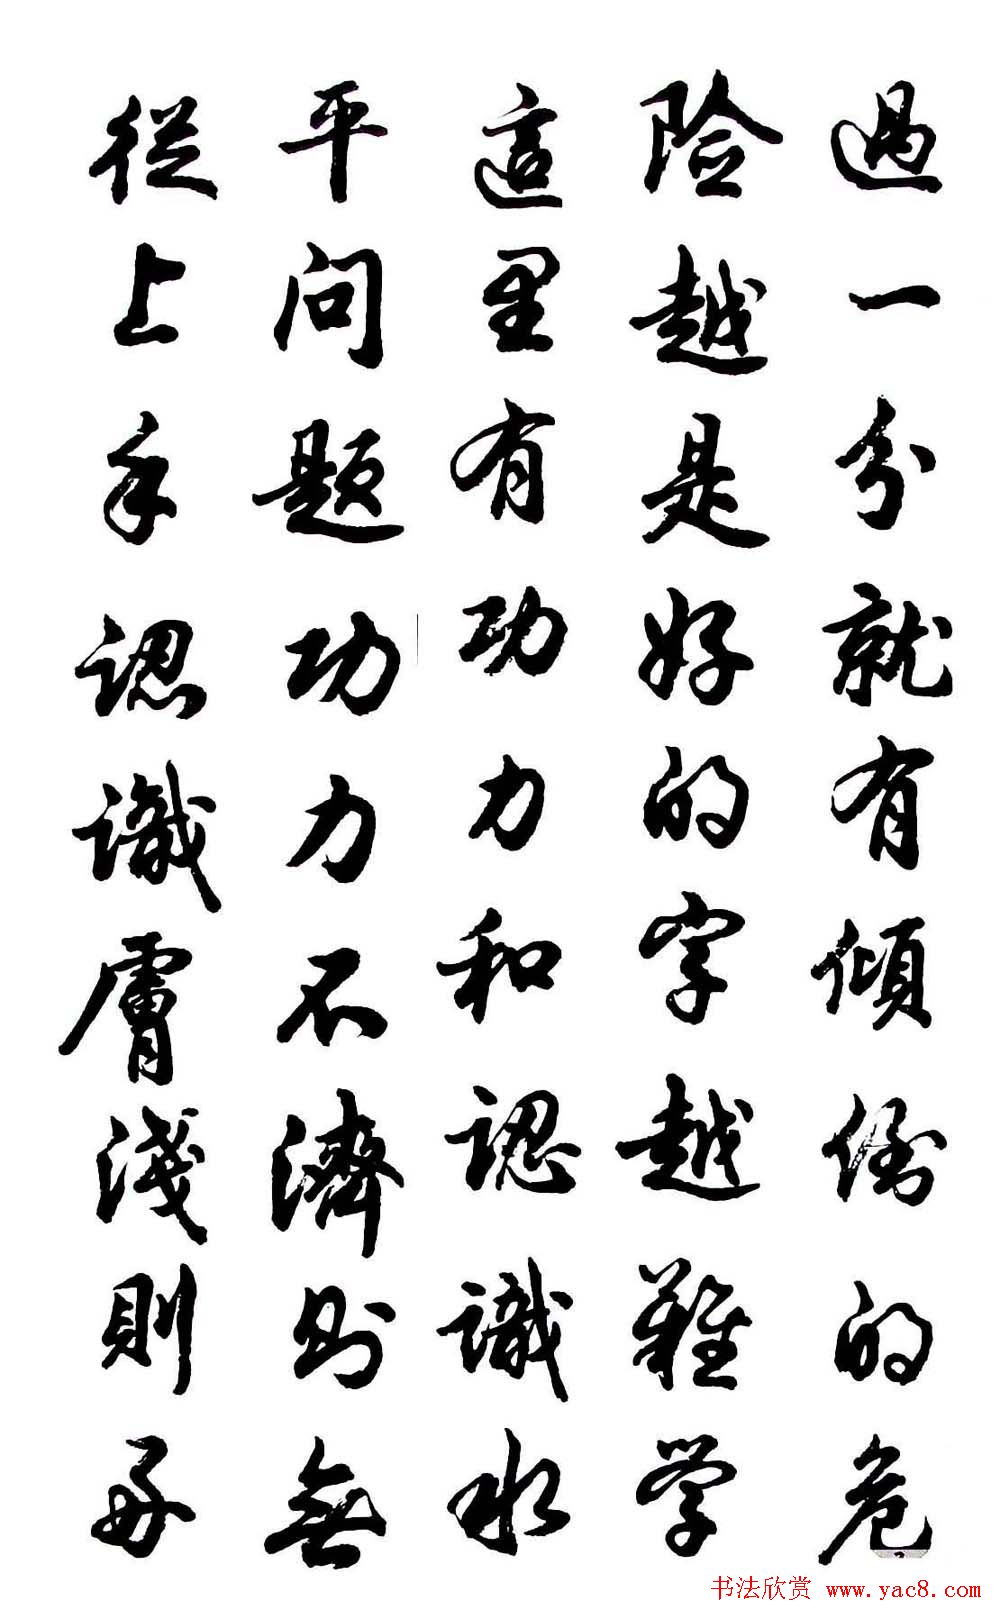 過一分就有傾倒的危
险越是好的字越難学
這里有功力和認識水
平问题功力不濟则無
従上手認識膚淺則毋
书法欣赏 www.yac8.com